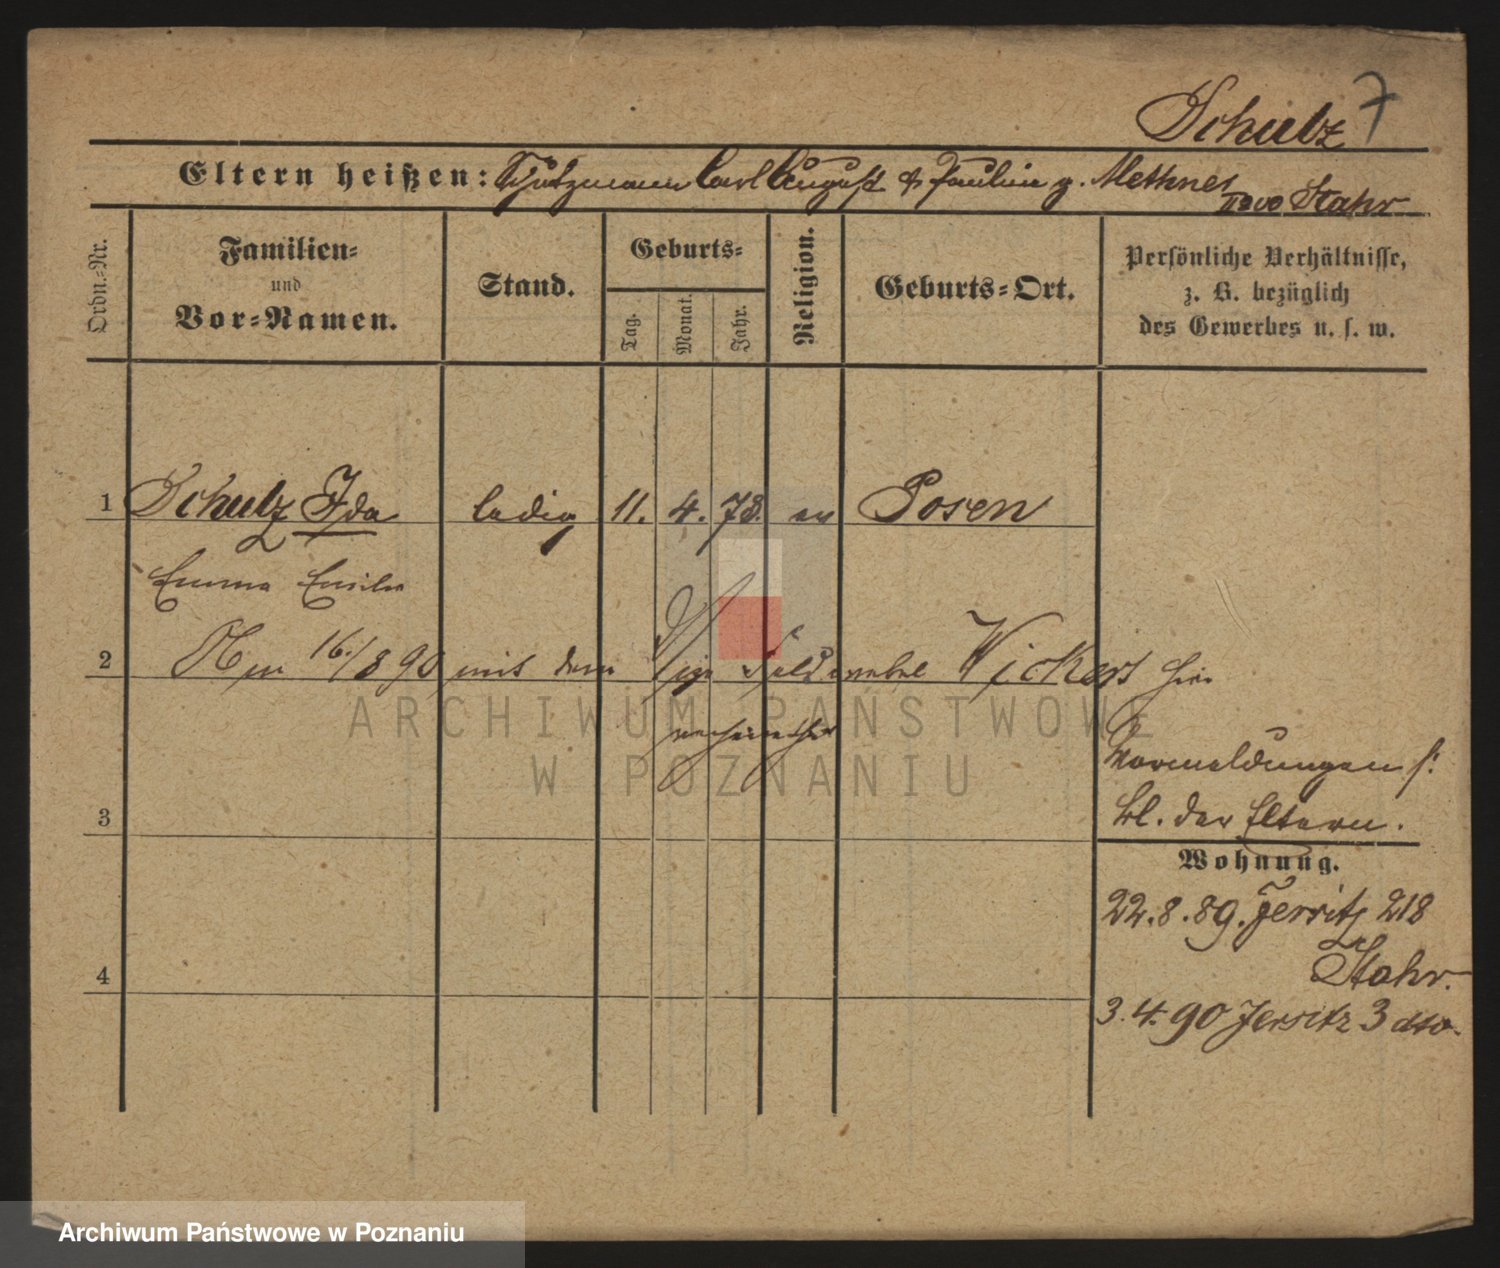 Schulz 7
Eltern heißen: Schutzmann Carl August & Paulin g. Methner
IIvo Stahr
Ordn.-Nr.
Familien-
und
Vor-Namen.
Stand.
Geburts-
Tag.
Monat.
Jahr.
Religion.
Geburts-Ort.
Persönliche Verhältnisse,
z. B. bezüglich
des Gewerbes u. s. w.
1 Schulz Ida ledig 11. 4. 73. ev Posen
Emma Emilie
2 Am 16./8 90 mit dem Feldwebel Wickert hier
verheirathet
ARCHIWUM PAŃSTWOWE
W POZNANIU
Vormeldungen s.
bl. der Eltern.
3
Wohnung.
22.8.89. Jersitz 218
Stahr.
4
3.4.90 Jersitz 3 dto.
Archiwum Państwowe w Poznaniu